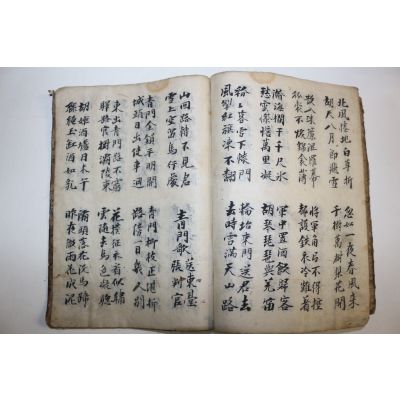 北風捲地白草折
胡天八月即飛雪
忽如一夜春風來
千樹萬樹梨花開
散入珠簾濕羅幕
狐裘不煖錦衾薄
將軍角弓不得控
都護鐵衣冷難着
瀚海闌干千尺氷
愁雲慘憺萬里凝
軍中置酒飮歸客
胡琴琵琶與羌笛
紛紛暮雪下轅門
風掣紅旗凍不翻
輪坮東門送君去
去時雪滿天山路
山回路轉不見君
雪上空留馬行處
青門歌 送東臺張判官
青門金鎖平明開
城頭日出使車迴
青門柳枝正堪折
路傍一日幾人別
東出青門路不窮
驛路雲樹灞陵東
花撲征衣看似繡
雲隨去馬色疑驄
胡姬酒壚日未午
絲繩玉缸酒如乳
灞頭落花沒馬蹄
昨夜微雨花成泥